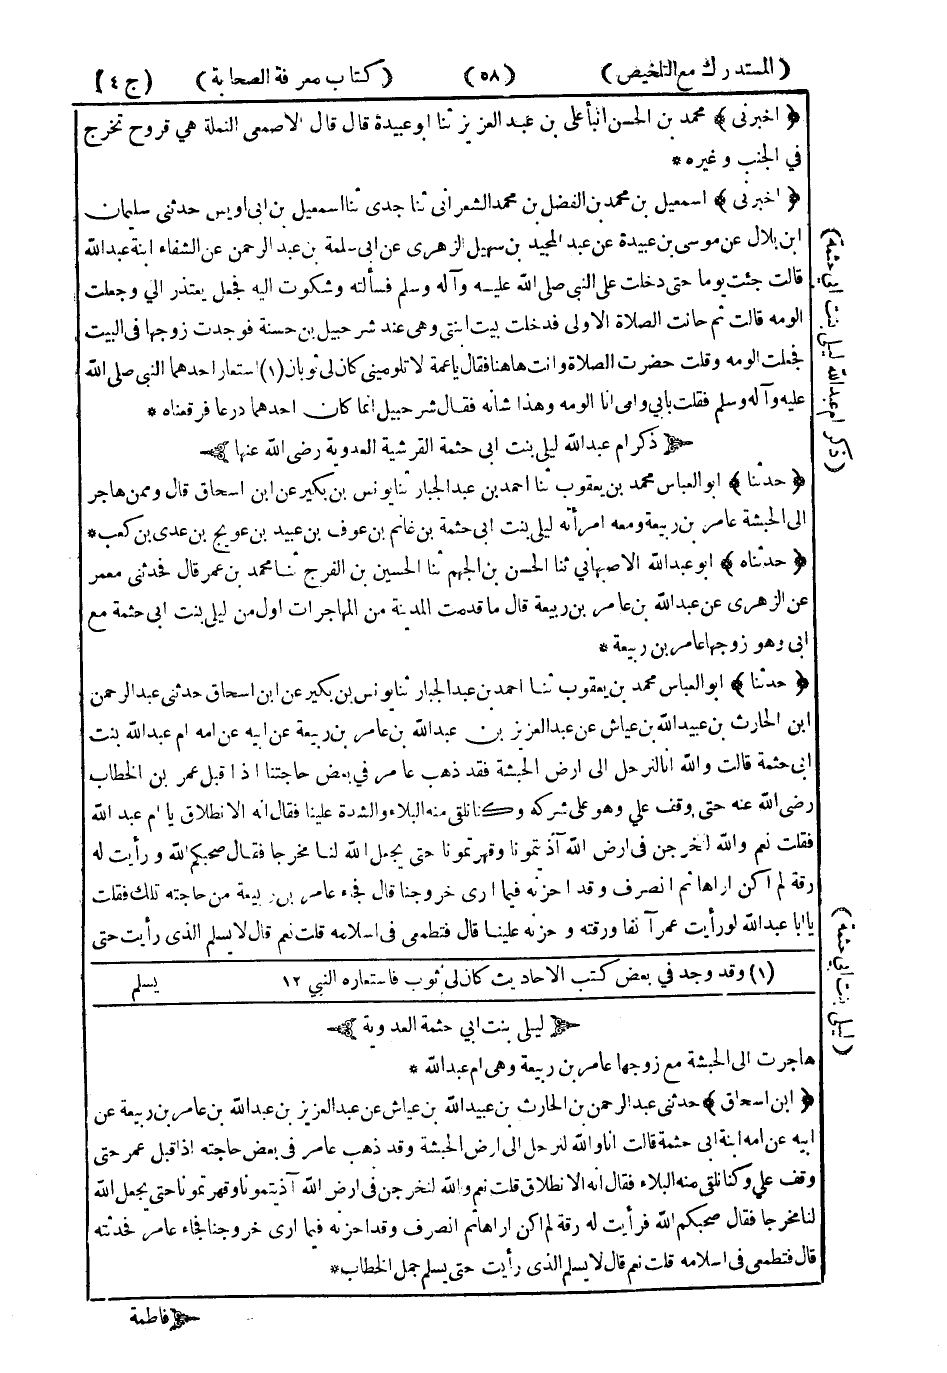 (المستدرك مع التلخيص) (٥٨) (كتاب معرفة الصحابة) (ج ٤)
﴿ اخبرنى ﴾ محمد بن الحسن انبأ على بن عبد العزيز ثنا ابو عبيدة قال قال الاصمعى النملة هي قروح تخرج
في الجنب و غيره *
﴿ اخبرنى ﴾ اسمعيل بن محمد بن الفضل بن محمد الشعرانى ثنا جدى ثنا اسمعيل بن ابى اويس حدثنى سليمان
ابن بلال عن موسى بن عبيدة عن عبد المجيد بن سهيل الزهرى عن ابى سلمة بن عبد الرحمن عن الشفاء ابنة عبدالله
قالت جئت يوما حتى دخلت على النبى صلى الله عليه وآله وسلم فسألته وشكوت اليه فجعل يعتذر الي وجعلت
الومه قالت ثم حانت الصلاة الاولى فدخلت بيت ابنتى وهى عند شرحبيل بن حسنة فوجدت زوجها فى البيت
فجعلت الومه وقلت حضرت الصلاة وانت هاهنا فقال ياعمة لا تلومينى كان لى ثوبان (١) استعار احدهما النبى صلى الله
عليه وآله وسلم فقلت بابي وامى انا الومه وهذا شانه فقال شرحبيل انما كان احدهما درعا فرقعناه *
ذكر ام عبدالله ليلى بنت ابى حثمة القرشية العدوية رضى الله عنها
﴿ حدثنا ﴾ ابو العباس محمد بن يعقوب ثنا احمد بن عبد الجبار ثنا يونس بن بكير عن ابن اسحاق قال وممن هاجر
الى الحبشة عامر بن ربيعة ومعه امرأته ليلى بنت ابى حثمة بن غانم بن عوف بن عبيد بن عويج بن عدى بن كعب *
﴿ حدثناه ﴾ ابو عبدالله الاصبهاني ثنا الحسن بن الجهم ثنا الحسين بن الفرج ثنا محمد بن عمر قال فحدثنى معمر
عن الزهرى عن عبدالله بن عامر بن ربيعة قال ما قدمت المدينة من المهاجرات اول من ليلى بنت ابى حثمة مع
ابى وهو زوجها عامر بن ربيعة *
﴿ حدثنا ﴾ ابو العباس محمد بن يعقوب ثنا احمد بن عبد الجبار ثنا يونس بن بكير عن ابن اسحاق حدثنى عبد الرحمن
ابن الحارث بن عبيدالله بن عياش عن عبدالعزيز بن عبدالله بن عامر بن ربيعة عن ابيه عن امه ام عبدالله بنت
ابى حثمة قالت والله انا لنرحل الى ارض الحبشة فقد ذهب عامر في بعض حاجتنا اذ اقبل عمر بن الخطاب
رضى الله عنه حتى وقف علي وهو على شركه وكنا نلقى منه البلاء والشدة علينا فقال انه الانطلاق يا ام عبد الله
فقلت نعم والله لنخرجن فى ارض الله آذيتمونا وقهرتمونا حتى يجعل الله لنا مخرجا فقال صحبكم الله و رأيت له
رقة لم اكن اراها ثم انصرف وقد احزنه فيما ارى خروجنا قال فجاء عامر بن ربيعة من حاجته تلك فقلت
يا ابا عبدالله لو رأيت عمر آنفا ورقته و حزنه علينا قال فتطمعى فى اسلامه قلت نعم قال لا يسلم الذى رأيت حتى
(١) وقد وجد في بعض كتب الاحاديث كان لى ثوب فاستعاره النبي ١٢ يسلم
ليلى بنت ابي حثمة العدوية
هاجرت الى الحبشة مع زوجها عامر بن ربيعة وهى ام عبدالله *
﴿ ابن اسحاق ﴾ حدثنى عبد الرحمن بن الحارث بن عبيد الله بن عياش عن عبد العزيز بن عبدالله بن عامر بن ربيعة عن
ابيه عن امه ابنة ابى حثمة قالت انا والله لنرحل الى ارض الحبشة وقد ذهب عامر فى بعض حاجته اذ اقبل عمر حتى
وقف علي وكنا نلقى منه البلاء فقال انه الانطلاق قلت نعم والله لنخرجن فى ارض الله آذيتمونا وقهرتمونا حتى يجعل الله
لنا مخرجا فقال صحبكم الله فرأيت له رقة لم اكن اراها ثم انصرف وقد احزنه فيما ارى خروجنا فجاء عامر فحدثته
قال فتطمعى فى اسلامه قلت نعم قال لا يسلم الذى رأيت حتى يسلم جمل الخطاب *
فاطمة
(ذكر ام عبدالله ليلى بنت ابي حثمة)
(ليلى بنت ابي حثمة)